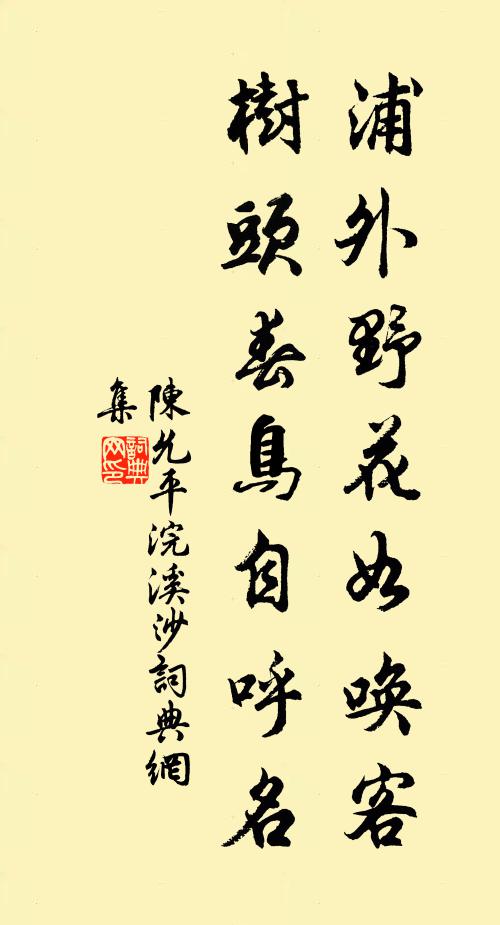 浦外野花如喚客
樹頭春鳥自呼名
陳允平浣溪沙詞典網
集
詞典
网印